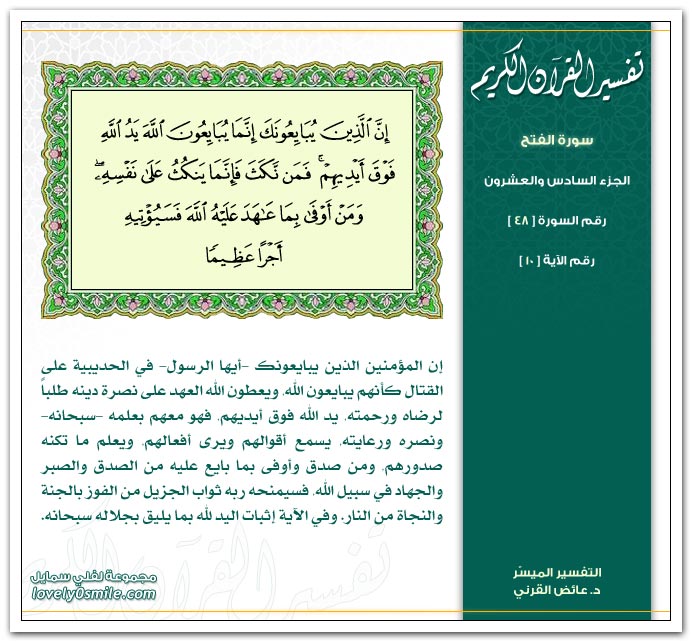 تفسير القرآن الكريم
سورة الفتح
الجزء السادس والعشرون
رقم السورة [ ٤٨ ]
رقم الآية [ ١٠ ]
إِنَّ ٱلَّذِينَ يُبَايِعُونَكَ إِنَّمَا يُبَايِعُونَ ٱللَّهَ يَدُ ٱللَّهِ
فَوْقَ أَيْدِيهِمْ ۚ فَمَن نَّكَثَ فَإِنَّمَا يَنكُثُ عَلَىٰ نَفْسِهِۦ ۖ
وَمَنْ أَوْفَىٰ بِمَا عَـٰهَدَ عَلَيْهُ ٱللَّهَ فَسَيُؤْتِيهِ
أَجْرًا عَظِيمًا
إن المؤمنين الذين يبايعونك -أيها الرسول- في الحديبية على
القتال كأنهم يبايعون الله، ويعطون الله العهد على نصرة دينه طلباً
لرضاه ورحمته، يد الله فوق أيديهم، فهو معهم بعلمه -سبحانه-
ونصره ورعايته، يسمع أقوالهم ويرى أفعالهم، ويعلم ما تكنه
صدورهم، ومن صدق وأوفى بما بايع عليه من الصدق والصبر
والجهاد في سبيل الله، فسيمنحه ربه ثواب الجزيل من الفوز بالجنة
والنجاة من النار. وفي الآية إثبات اليد لله بما يليق بجلاله سبحانه.
التفسير الميسّر
د. عائض القرني
مجموعة لفلي سمايل
lovely0smile.com
تفسير القرآن الكريم